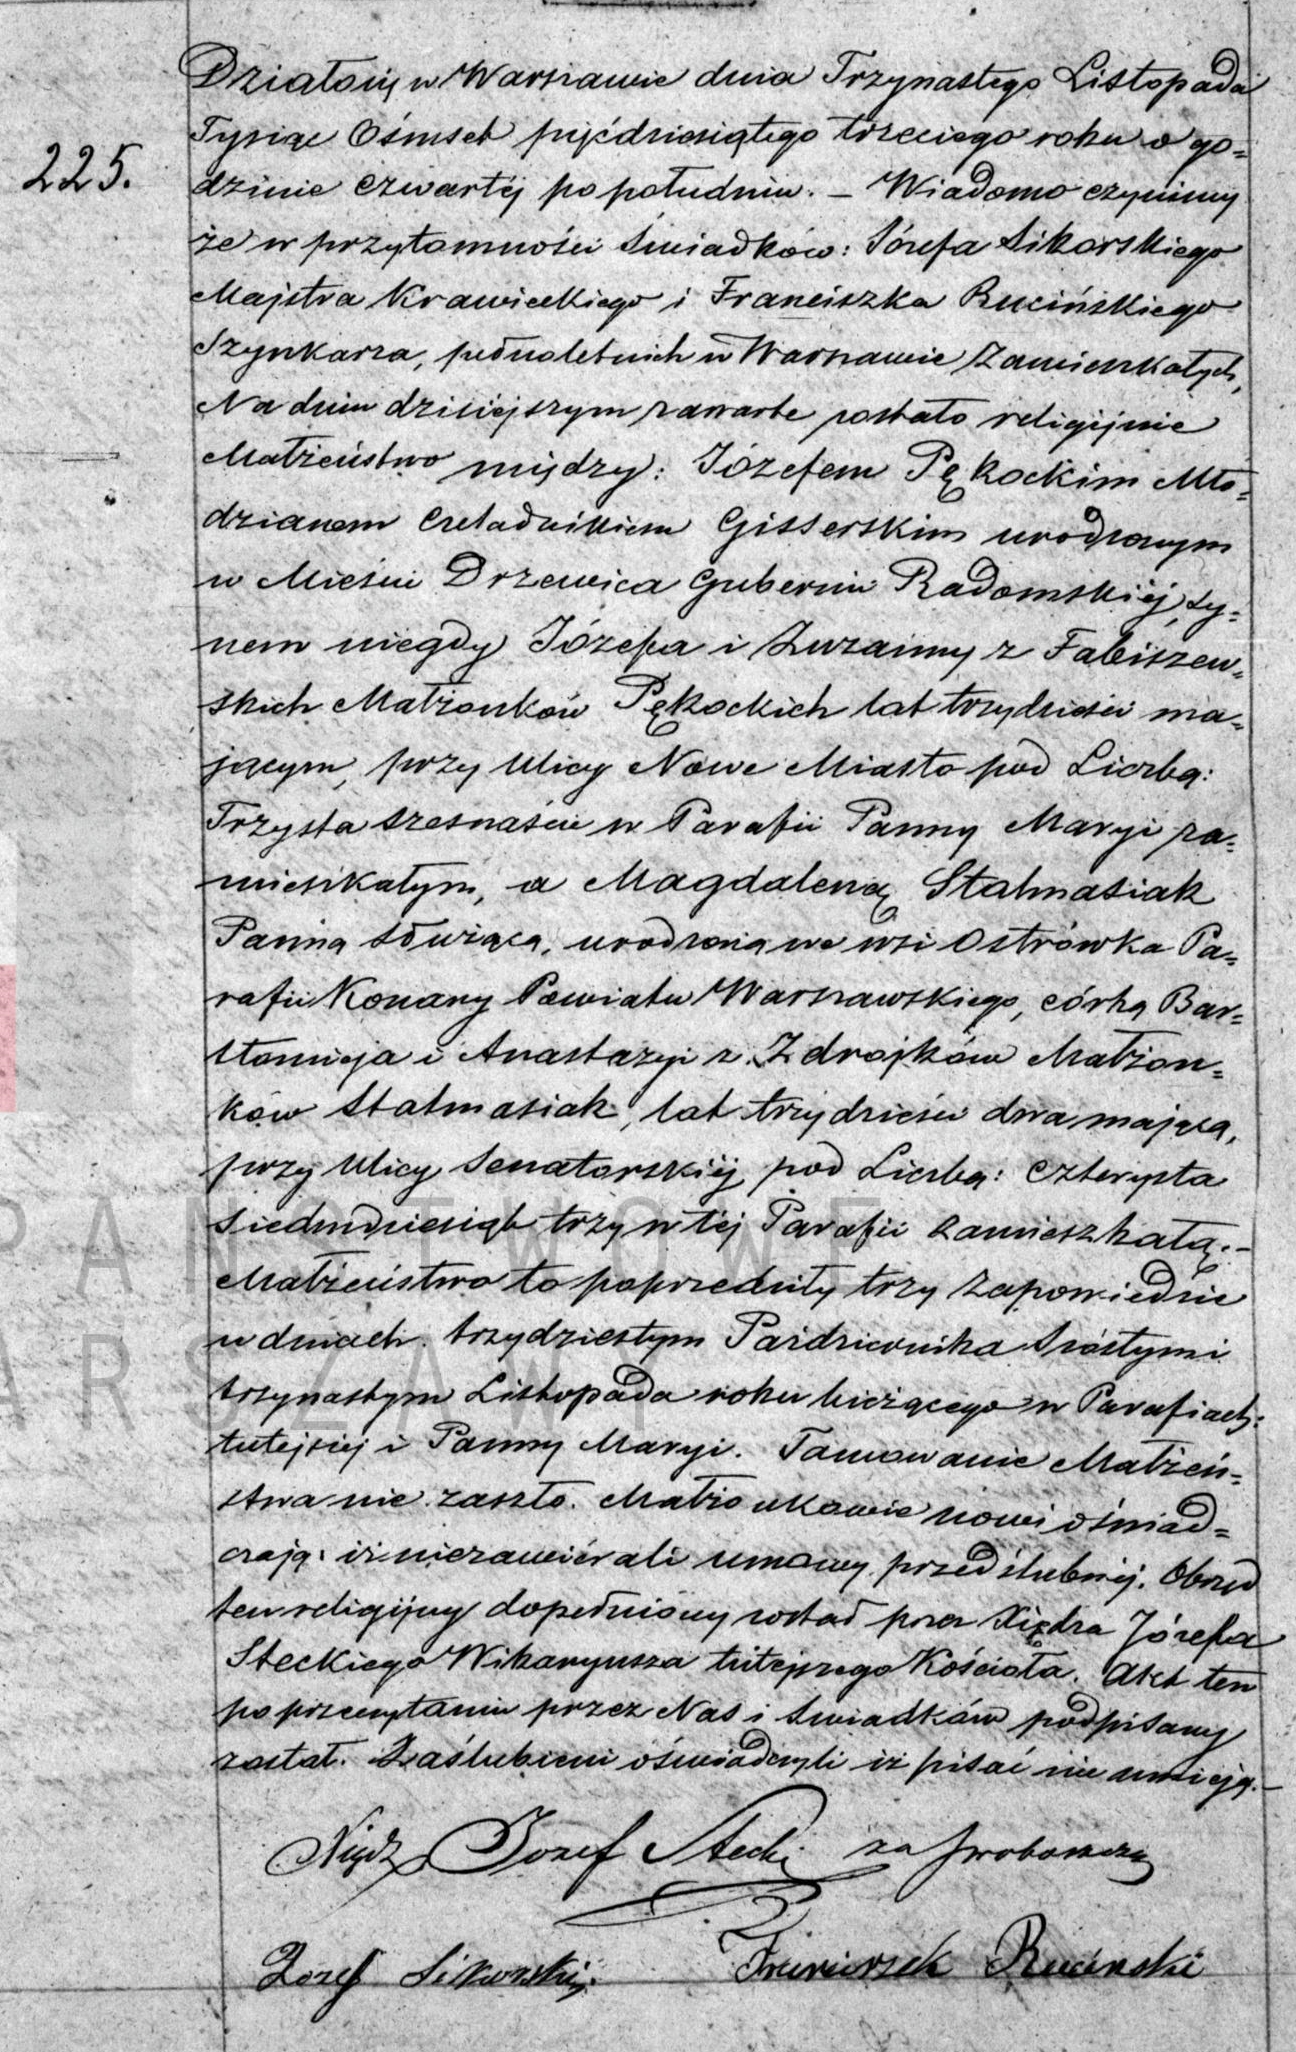 Działo się w Warszawie dnia Trzynastego Listopada
Tysiąc Ośmset pięćdziesiątego trzeciego roku o go=
225.
dzinie czwartéj po południu. – Wiadomo czynimy
że w przytomności Świadków: Józefa Sikorskiego
Majstra Krawieckiego i Franciszka Rucińskiego
Szynkarza, pełnoletnich w Warszawie Zamieszkałych,
Na dniu dzisiejszym zawarte zostało religijnie
Małżeństwo między: Józefem Pękockim Mło=
dzianem Czeladnikiem Gisserskim urodzonym
w Mieście Drzewica Gubernii Radomskiéj, sy=
nem niegdy Józefa i Zuzanny z Fabiszew=
skich Małżonków Pękockich lat trzydzieści ma=
jącym, przy Ulicy Nowe Miasto pod Liczbą:
Trzysta szesnaście w Parafii Panny Maryi za=
mieszkałym, a Magdaleną Stalmasiak
Panną służącą, urodzoną we wsi Ostrówka Pa=
rafii Konary Powiatu Warszawskiego, córką Bar=
tłomieja i Anastazyi z Zdrojków Małżon=
ków Stalmasiak, lat trzydzieści dwa mającą,
przy Ulicy Senatorskiéj pod Liczbą: Czterysta
Siedmdziesiąt trzy w téj Parafii zamieszkałą. –
Małżeństwo to poprzedziły trzy Zapowiedzie
w dniach trzydziestym Października szóstym i
trzynastym Listopada roku bieżącego w Parafiach:
tutejszej i Panny Maryi. Tamowanie Małżeń=
stwa nie zaszło. Małżonkowie nowi oświad=
czają: iż nie zawiérali umowy przedślubnéj. Obrzęd
ten religijny dopełniony został przez Xiędza Józefa
Steckiego Wikaryusza tutejszego Kościoła. Akt ten
po przeczytaniu przez Nas i Świadków podpisany
został. Zaślubieni oświadczyli iż pisać nie umieją. –
Xiądz Jozef Stecki za proboszcza
Jozef Sikorski. Franciszek Ruciński
PAŃSTWOWE
WARSZAWI